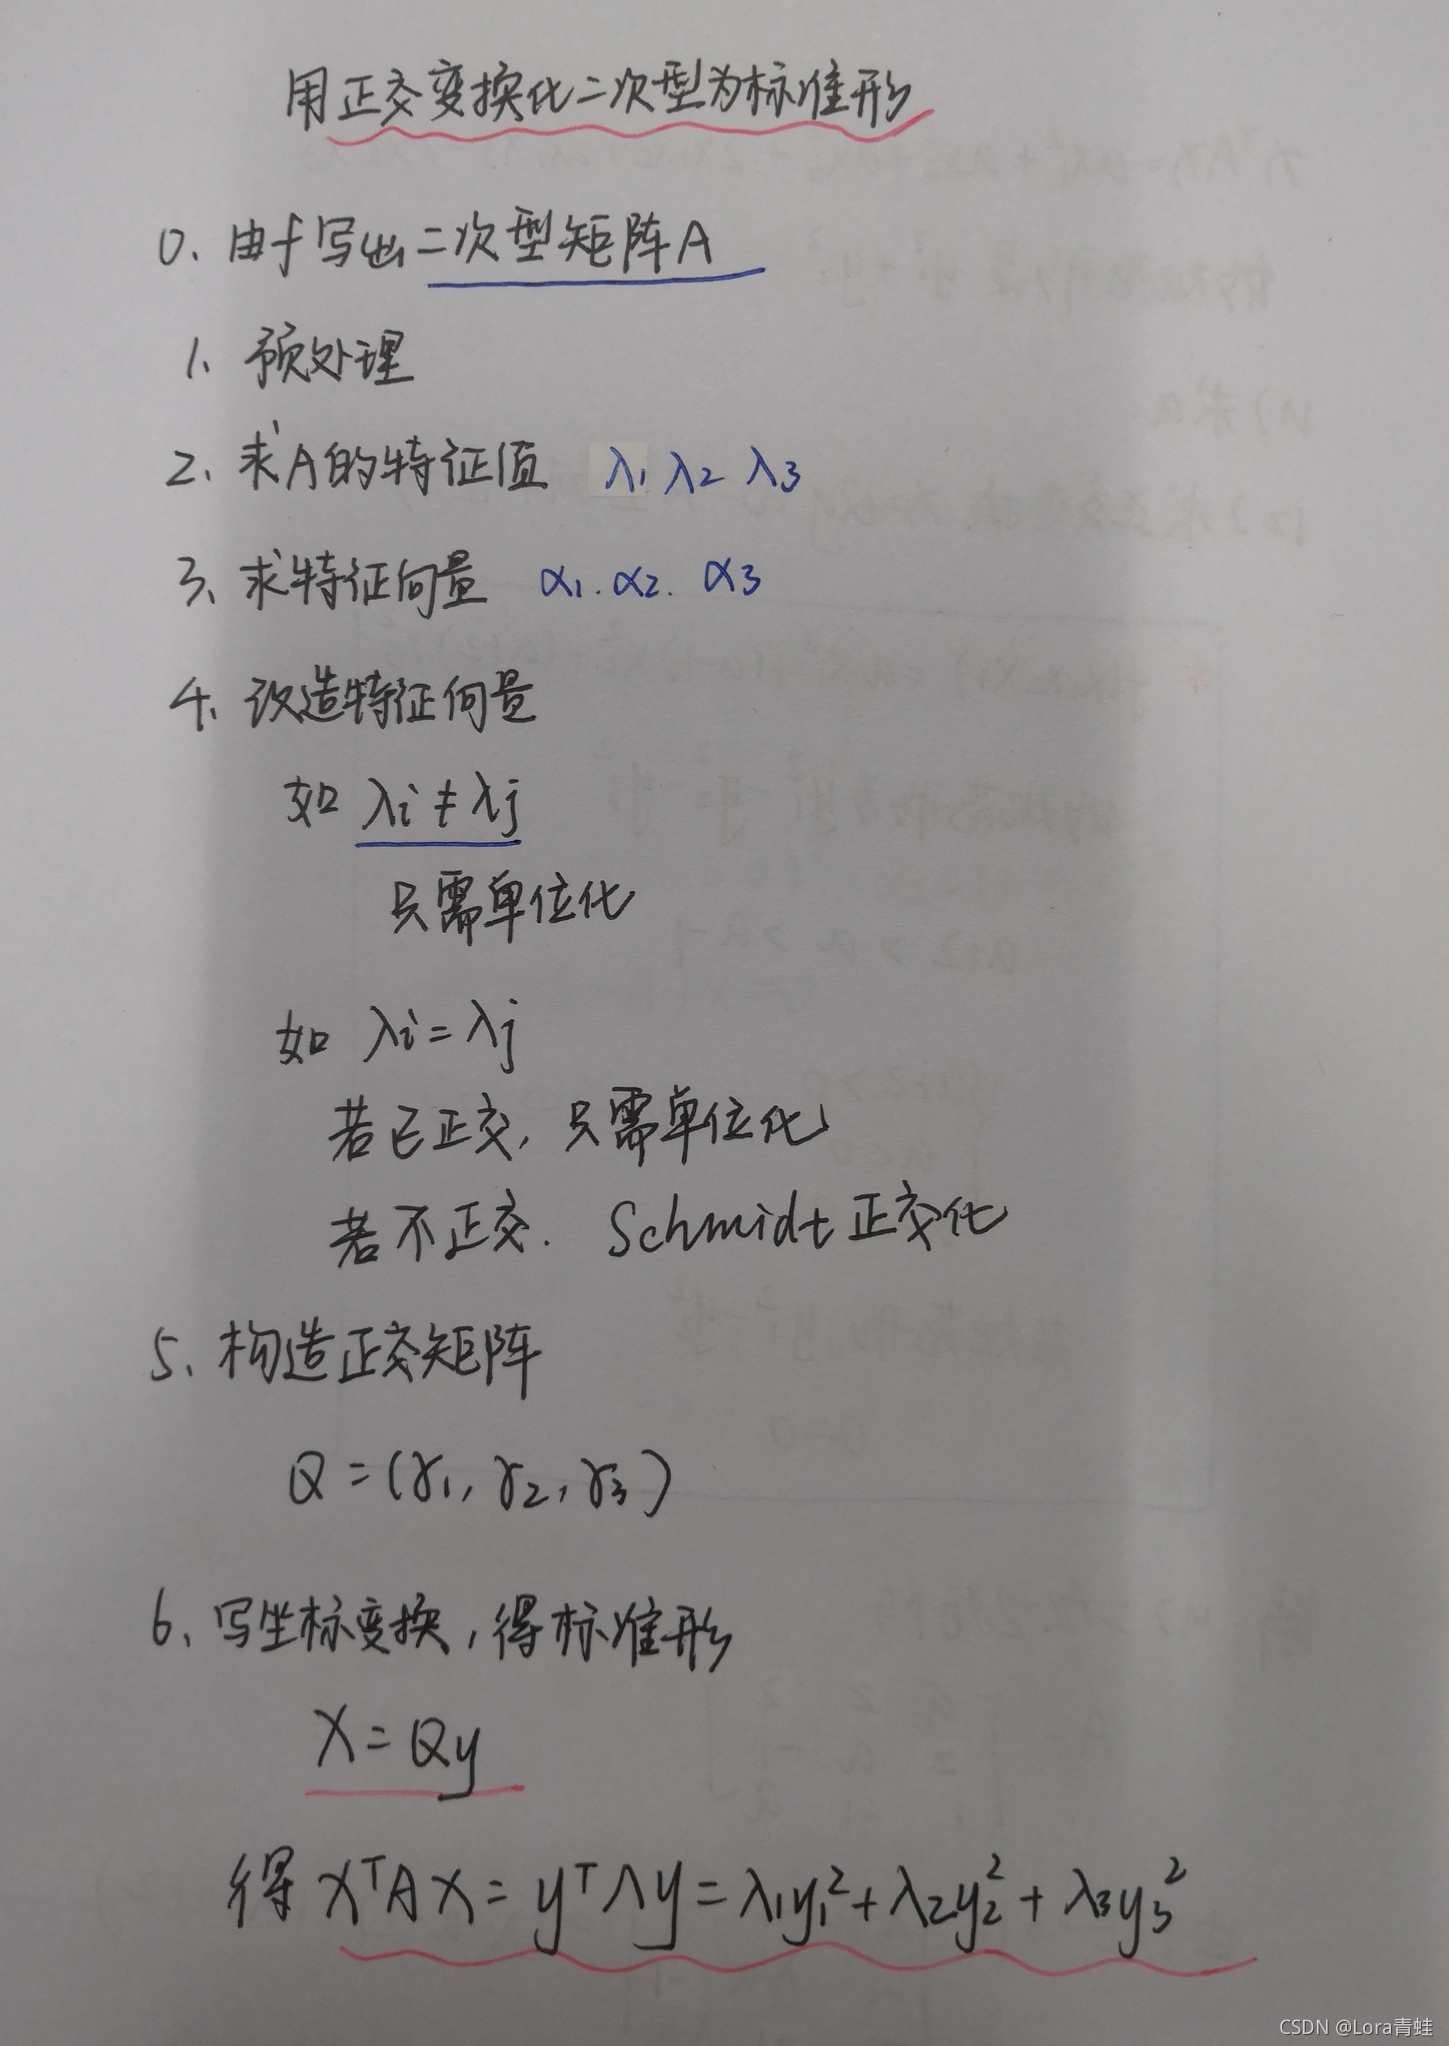 用正交变换化二次型为标准形
0. 由f写出二次型矩阵A
1. 预处理
2. 求A的特征值 λ₁ λ₂ λ₃
3. 求特征向量 α₁. α₂. α₃
4. 改造特征向量
如 λi ≠ λj
只需单位化
如 λi = λj
若已正交, 只需单位化
若不正交. Schmidt 正交化
5. 构造正交矩阵
Q = (γ₁, γ₂, γ₃)
6. 写坐标变换, 得标准形
X = Qy
得 XᵀAX = yᵀΛy = λ₁y₁² + λ₂y₂² + λ₃y₃²
CSDN @Lora青蛙